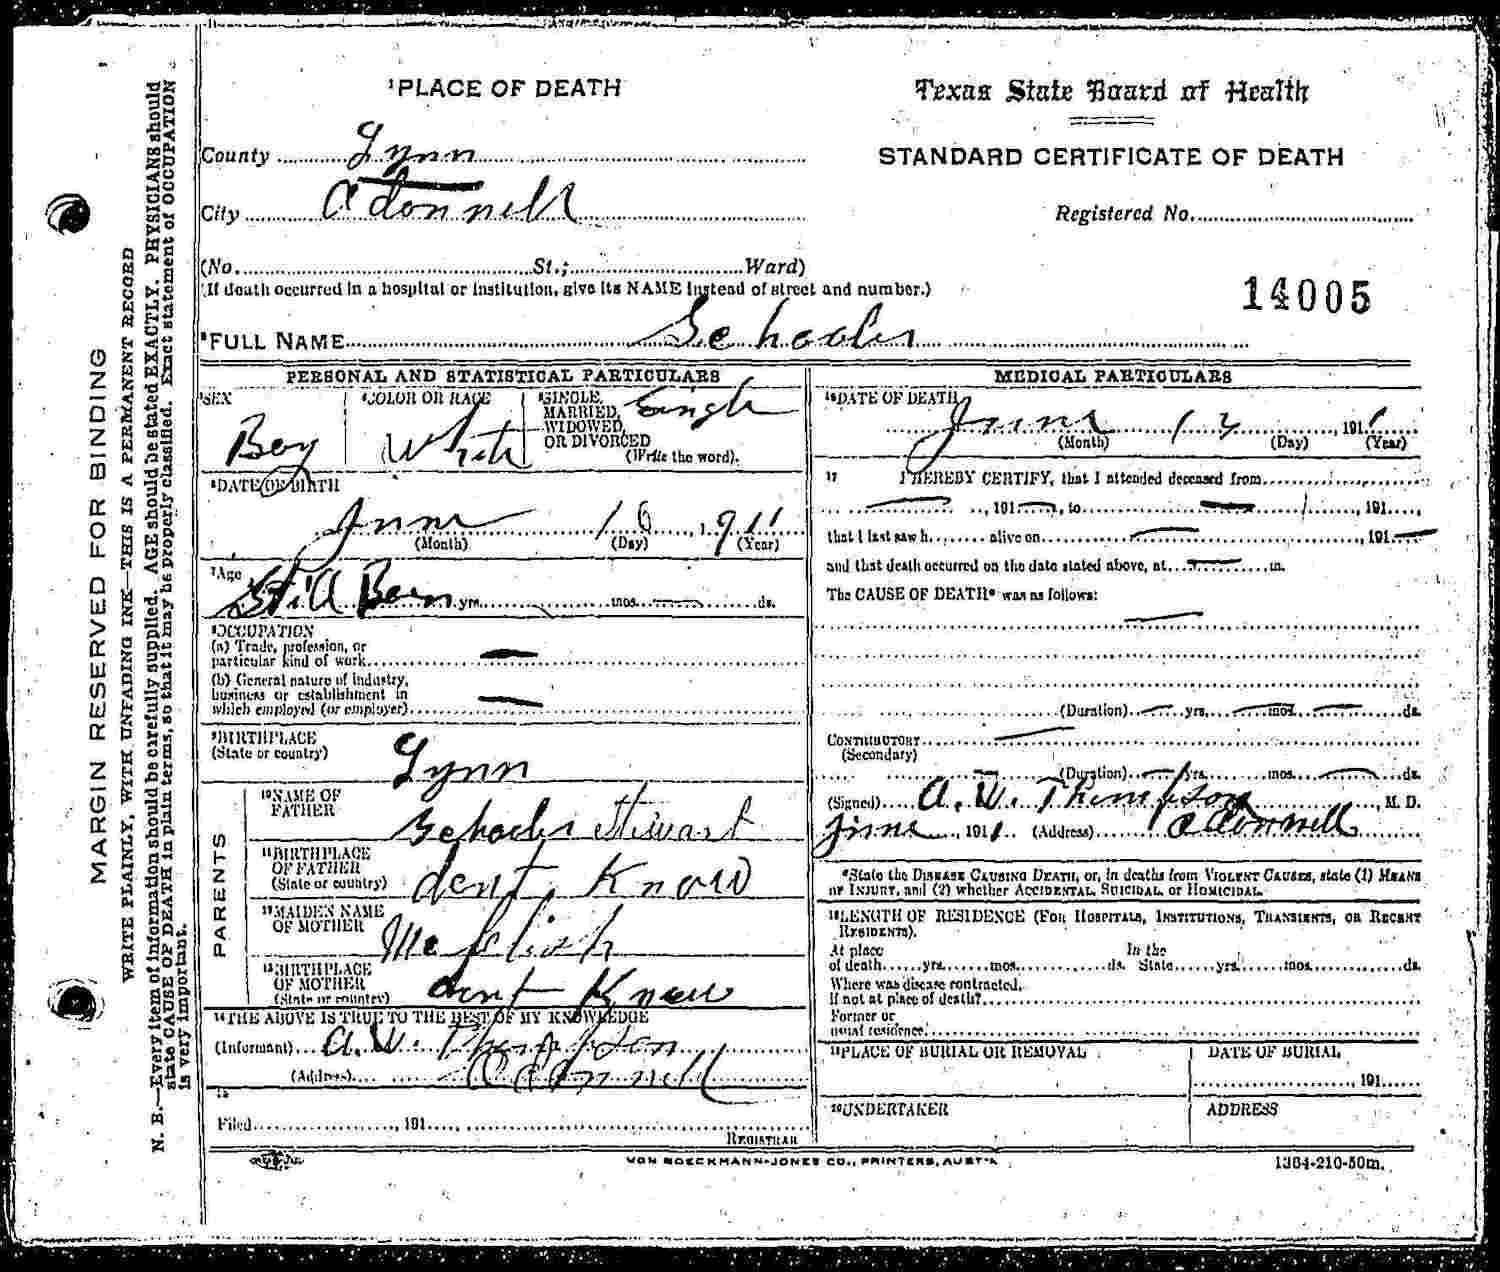 ¹PLACE OF DEATH
Texas State Board of Health
STANDARD CERTIFICATE OF DEATH
County Lynn
City Odonnell
Registered No.
(No. St.; Ward)
(If death occurred in a hospital or institution, give its NAME instead of street and number.)
14005
²FULL NAME Schooler
PERSONAL AND STATISTICAL PARTICULARS
³SEX Boy
⁴COLOR OR RACE White
⁵SINGLE, MARRIED, WIDOWED, OR DIVORCED (Write the word). Single
⁶DATE OF BIRTH
June 10 1911
(Month) (Day) (Year)
⁷Age
Still Born yrs. mos. ds.
⁸OCCUPATION
(a) Trade, profession, or
particular kind of work
(b) General nature of industry,
business or establishment in
which employed (or employer)
⁹BIRTHPLACE
(State or country) Lynn
PARENTS
¹⁰NAME OF
FATHER Schooler Stewart
¹¹BIRTHPLACE
OF FATHER
(State or country) dont Know
¹²MAIDEN NAME
OF MOTHER
¹³BIRTHPLACE
OF MOTHER
(State or country) dont Know
¹⁴THE ABOVE IS TRUE TO THE BEST OF MY KNOWLEDGE
(Informant) A. W. Thompson
(Address) Odonnell
¹⁵
Filed , 191 ,
REGISTRAR
MEDICAL PARTICULARS
¹⁶DATE OF DEATH
June 13 1911
(Month) (Day) (Year)
¹⁷ I HEREBY CERTIFY, that I attended deceased from
, 191 , to , 191 ,
that I last saw h alive on , 191
and that death occurred on the date stated above, at m.
The CAUSE OF DEATH* was as follows:
(Duration) yrs. mos. ds.
CONTRIBUTORY
(Secondary)
(Duration) yrs. mos. ds.
(Signed) A. W. Thompson, M. D.
June , 1911 (Address) Odonnell
*State the DISEASE CAUSING DEATH, or, in deaths from VIOLENT CAUSES, state (1) MEANS
OF INJURY, and (2) whether ACCIDENTAL, SUICIDAL, or HOMICIDAL.
¹⁸LENGTH OF RESIDENCE (FOR HOSPITALS, INSTITUTIONS, TRANSIENTS, OR RECENT
RESIDENTS).
At place In the
of death yrs. mos. ds. State yrs. mos. ds.
Where was disease contracted,
if not at place of death?
Former or
usual residence
¹⁹PLACE OF BURIAL OR REMOVAL
DATE OF BURIAL
, 191
²⁰UNDERTAKER
ADDRESS
VON BOECKMANN-JONES CO., PRINTERS, AUSTIN
1364-210-50m.
MARGIN RESERVED FOR BINDING
WRITE PLAINLY, WITH UNFADING INK—THIS IS A PERMANENT RECORD
N. B.—Every item of information should be carefully supplied. AGE should be stated EXACTLY. PHYSICIANS should
state CAUSE OF DEATH in plain terms, so that it may be properly classified. Exact statement of OCCUPATION
is very important.